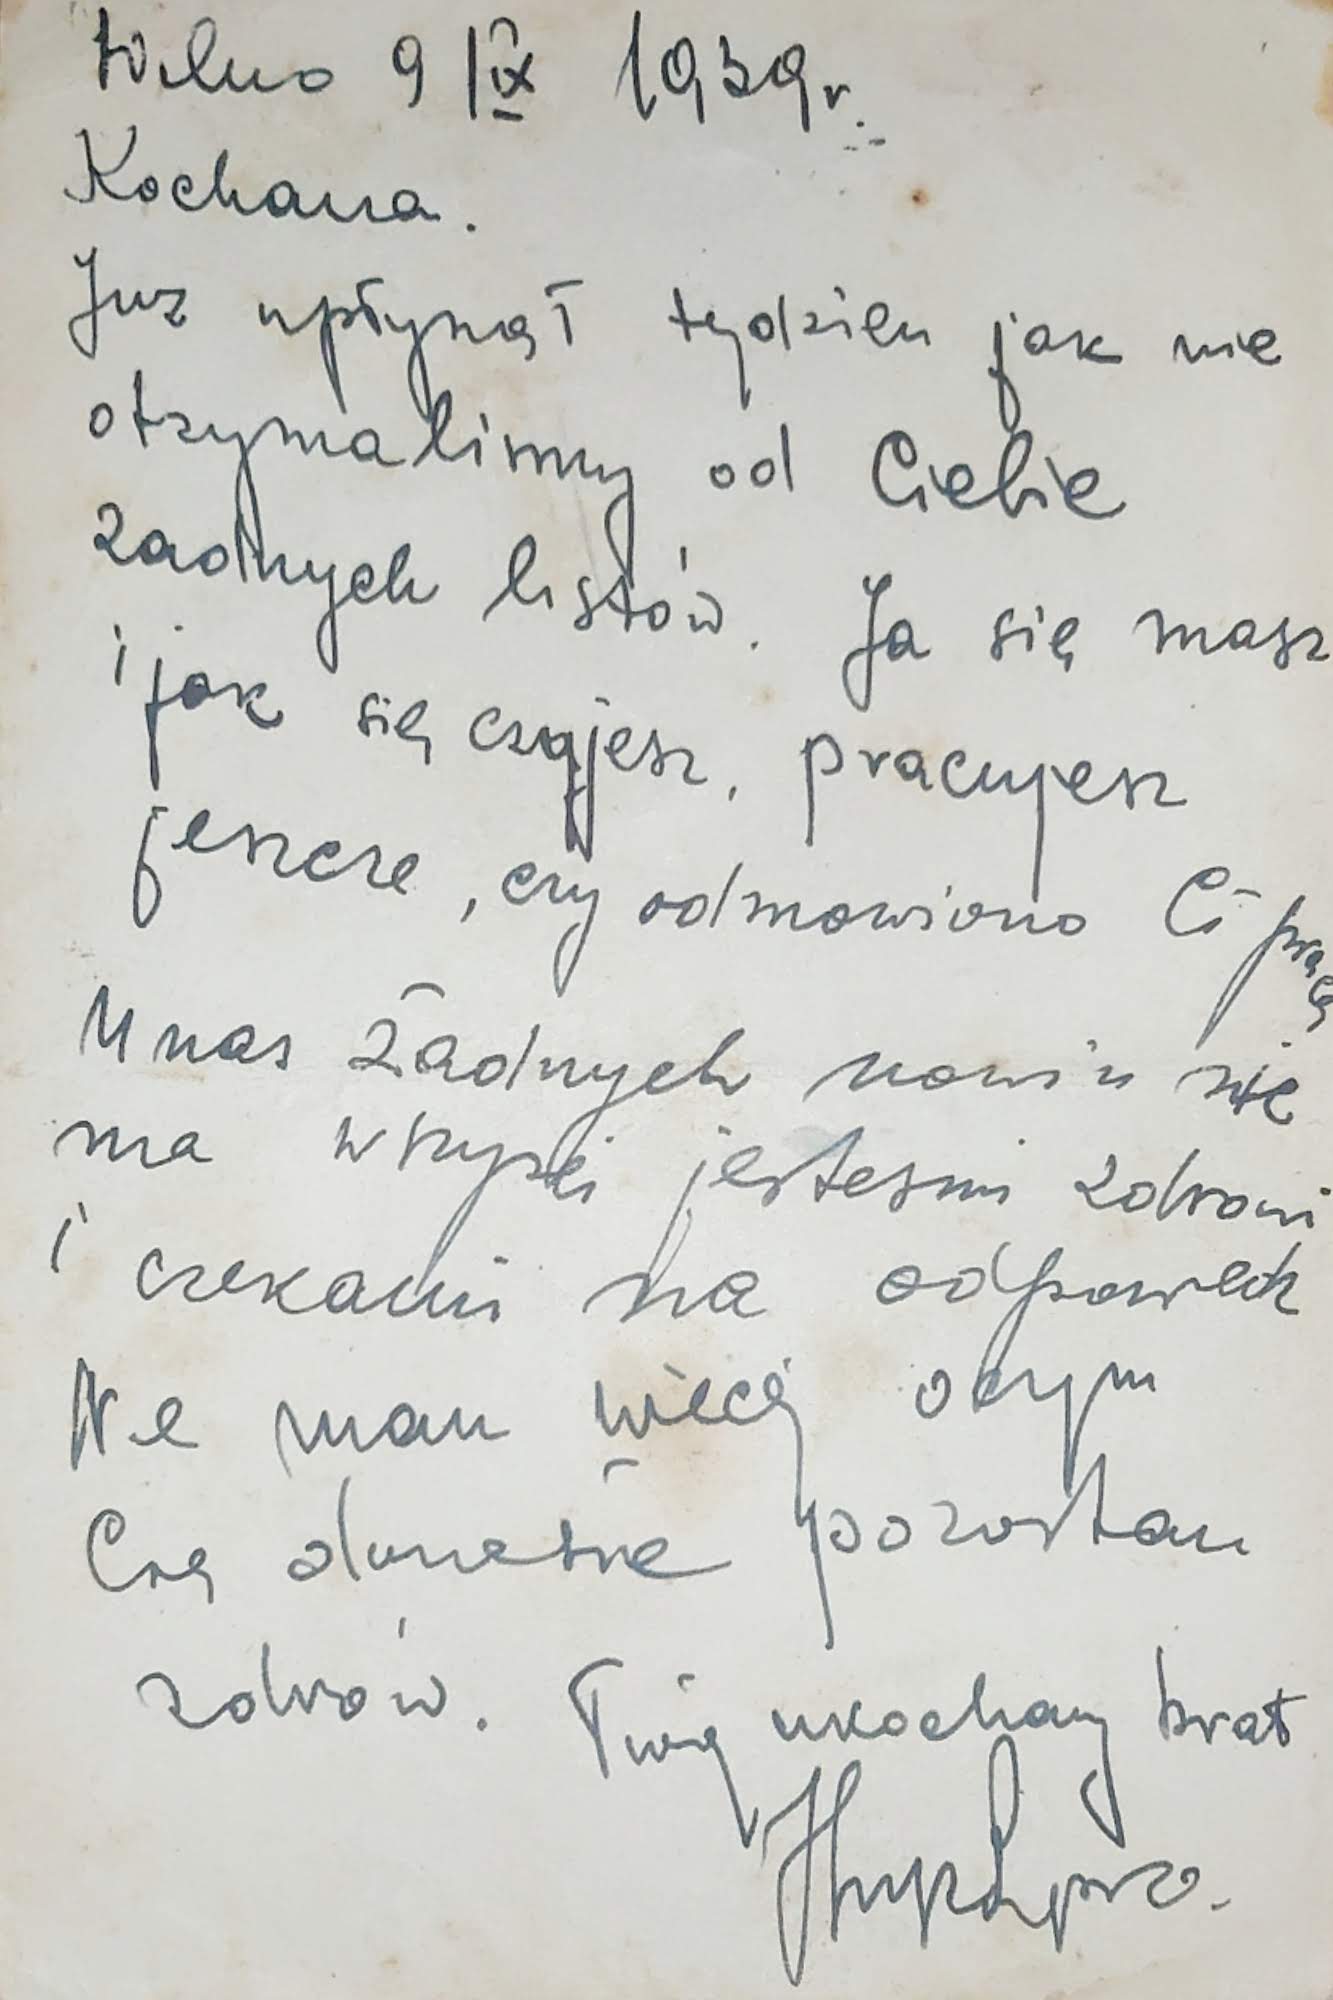 Wilno 9 IX 1939r.
Kochana.
Już upłynął tydzień jak nie
otrzymalimy od Ciebie
żadnych listów. Ja się masz
i jak się czujesz, pracujesz
jeszcze, czy odmowiono Ci pracę
U nas żadnych nowin nie
ma wszysci jestesmi zdrowi
i czekami na odpowedz
Ne mam więcej oczym
Cię donieśie pozostan
zdrów. Twój ukochany brat